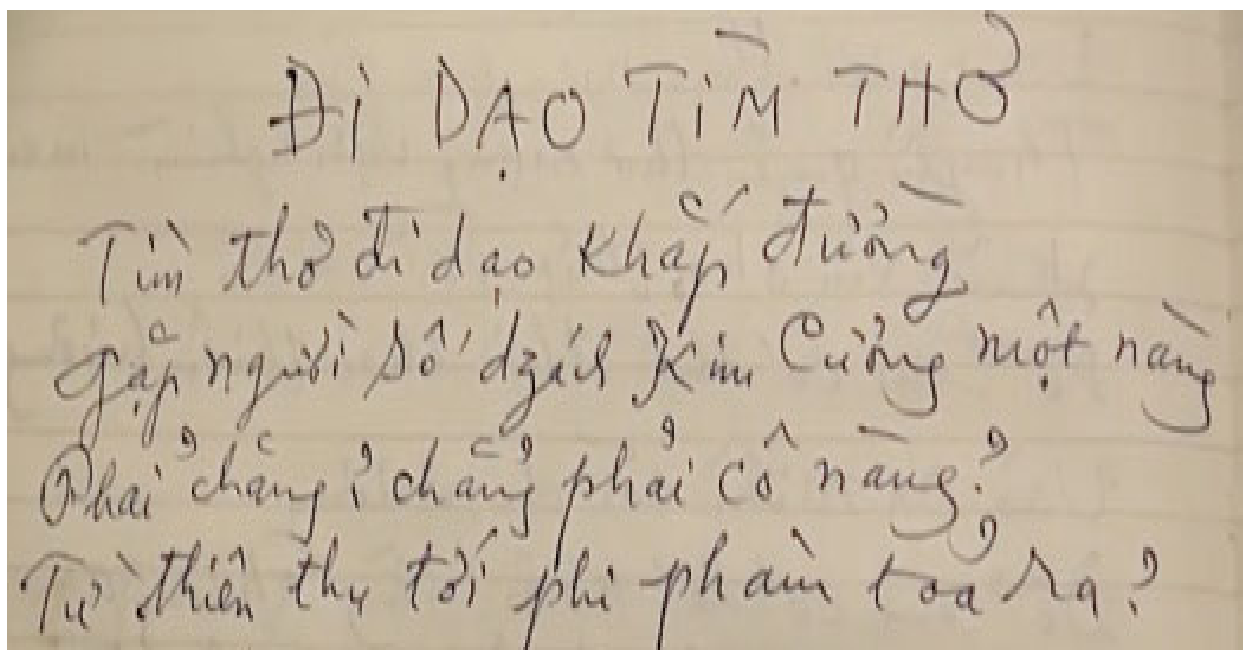 ĐI DẠO TÌM THƠ
Tìm thơ đi dạo khắp đường
Gặp người số dzách Kim Cương một nàng
Phải chăng? chẳng phải cô nàng?
Từ thiên thu tới phi phàm toả ra?